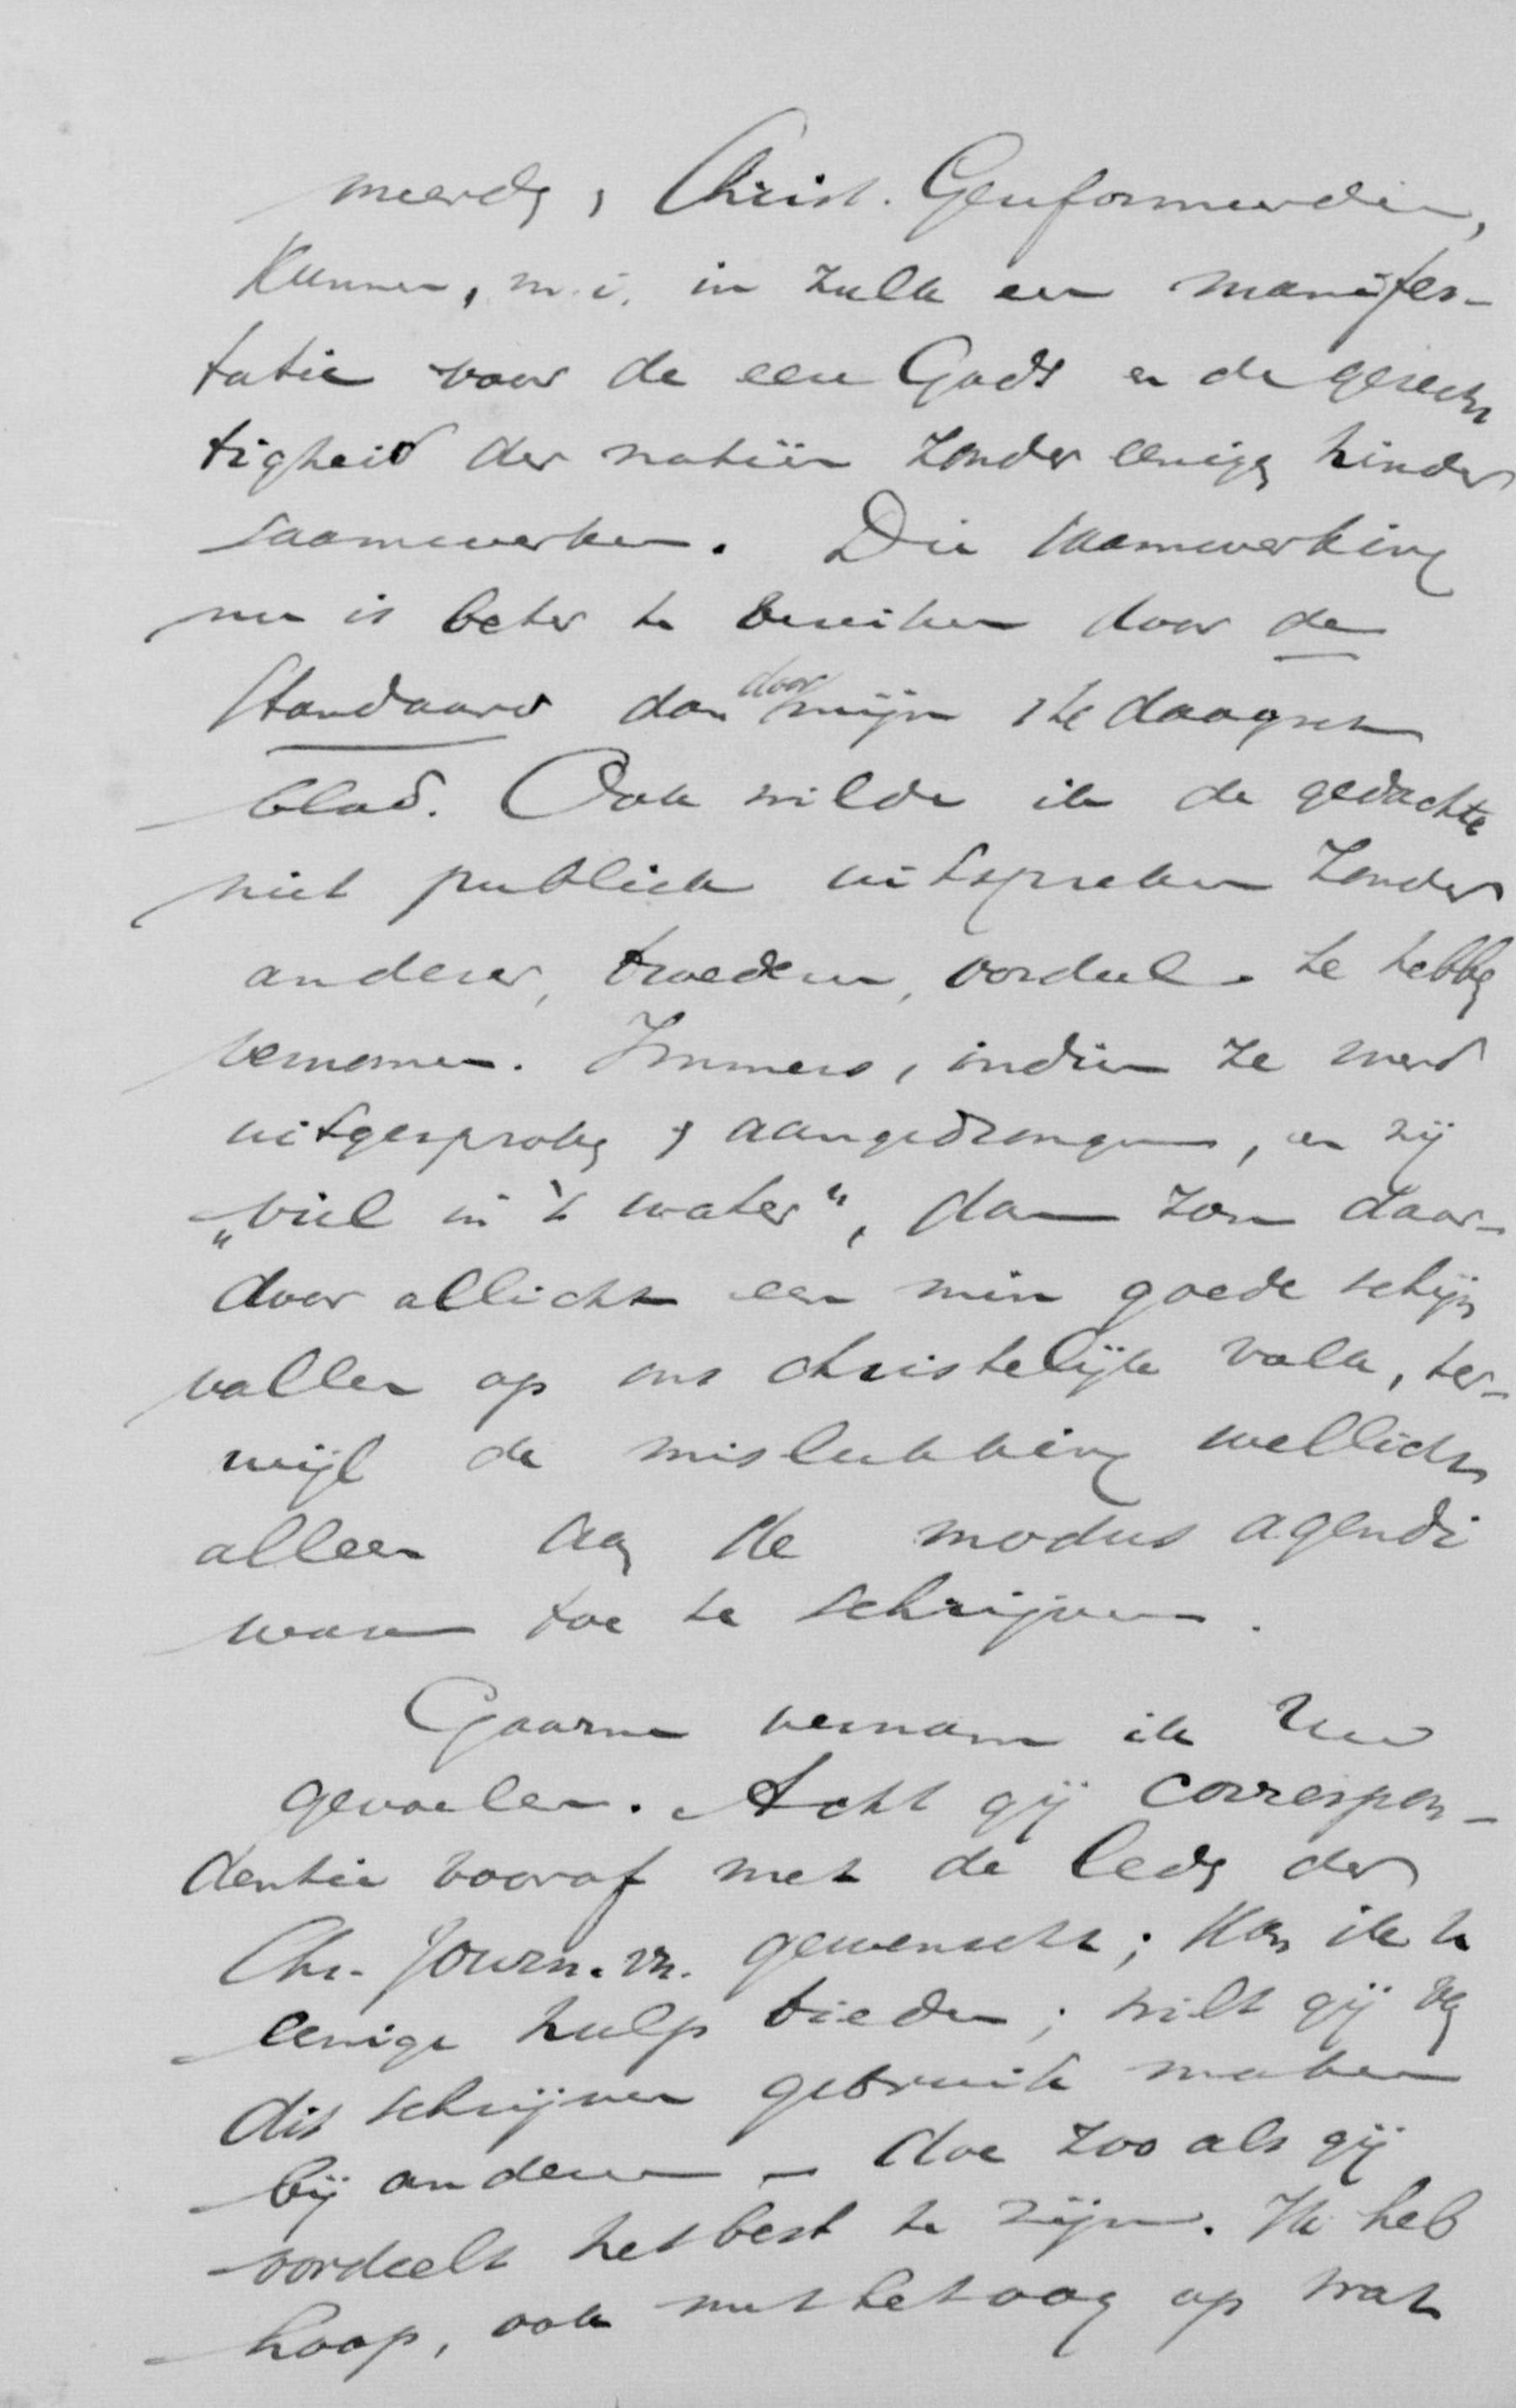 meerden, Christ. Gereformeerden,
Kunnen, m.i. in zulk een manifes-
tatie voor de eere Gods en de gerech
tigheid der natiën zonder eenigen hinder
saamwerken. Die saamwerking
nu is beter te bereiken door de
Standaard dan door mijn daagsch
blad. Ook wilde ik de gedachte
niet publiek uitspreken zonder
anderer, broederen, oordeel te hebben
vernomen. Immers, indien ze werd
uitgesproken & aangedrongen, en zij
„viel in 't water", dan zou daar-
door allicht een min goede schijn
vallen op ons christelijk volk, ter-
wijl de mislukking wellicht
alleen aan de modus agendi
ware toe te schrijven.
Gaarne vernam ik Uw
gevoelen. Acht gij correspon-
dentie vooraf met de leden der
Chr. Journ. vr. gewenscht; Kan ik U
eenige hulp bieden; wilt gij van
dit schrijven gebruik maken
bij anderen – doe zoo als gij
oordeelt het best te zijn. Ik heb
hoop, ook met het oog op wat